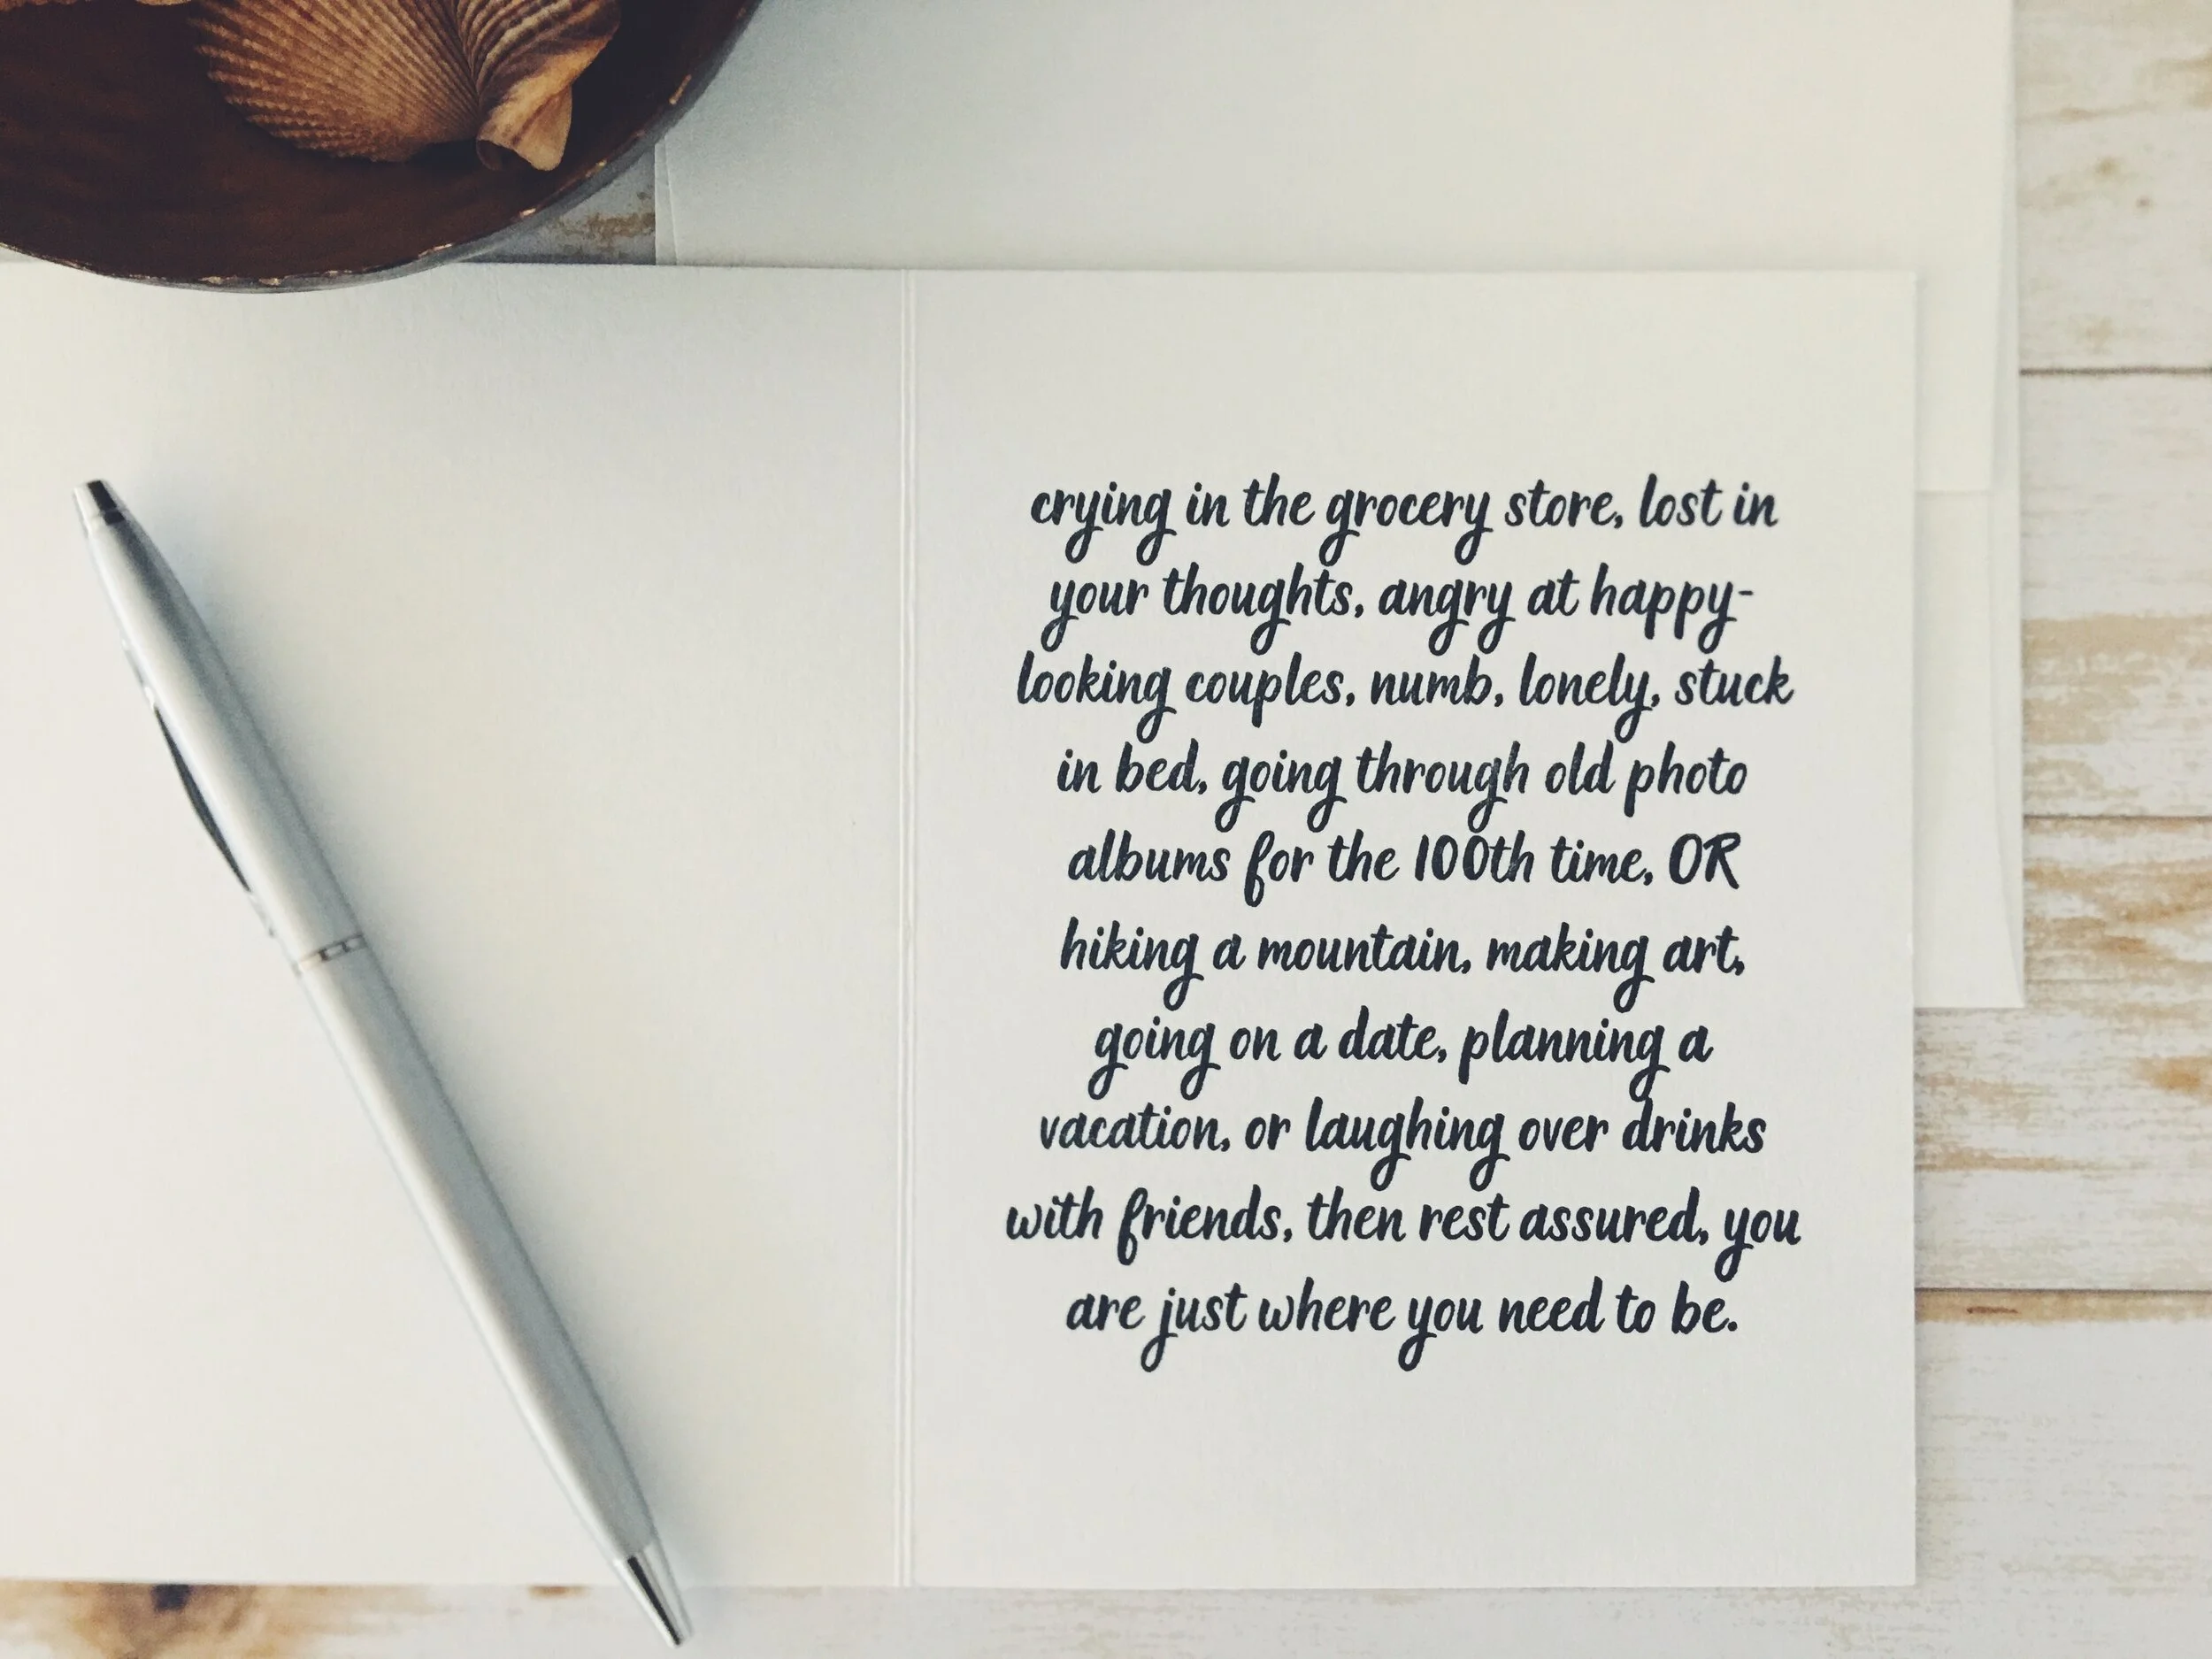 crying in the grocery store, lost in
your thoughts, angry at happy-
looking couples, numb, lonely, stuck
in bed, going through old photo
albums for the 100th time, OR
hiking a mountain, making art,
going on a date, planning a
vacation, or laughing over drinks
with friends, then rest assured, you
are just where you need to be.